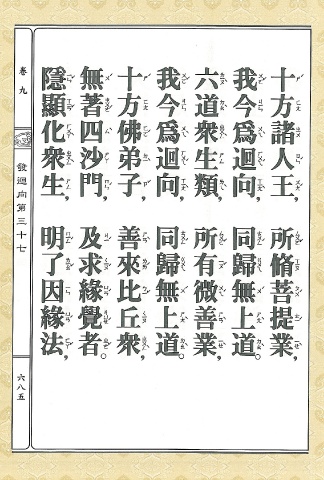 十方諸人王，所脩菩提業，
我今為迴向，同歸無上道。
六道衆生類，所有微善業，
我今為迴向，同歸無上道。
十方佛弟子，善來比丘衆，
無著四沙門，及求緣覺者。
隱顯化衆生，明了因緣法，
卷九
發迴向第三十七
六八五